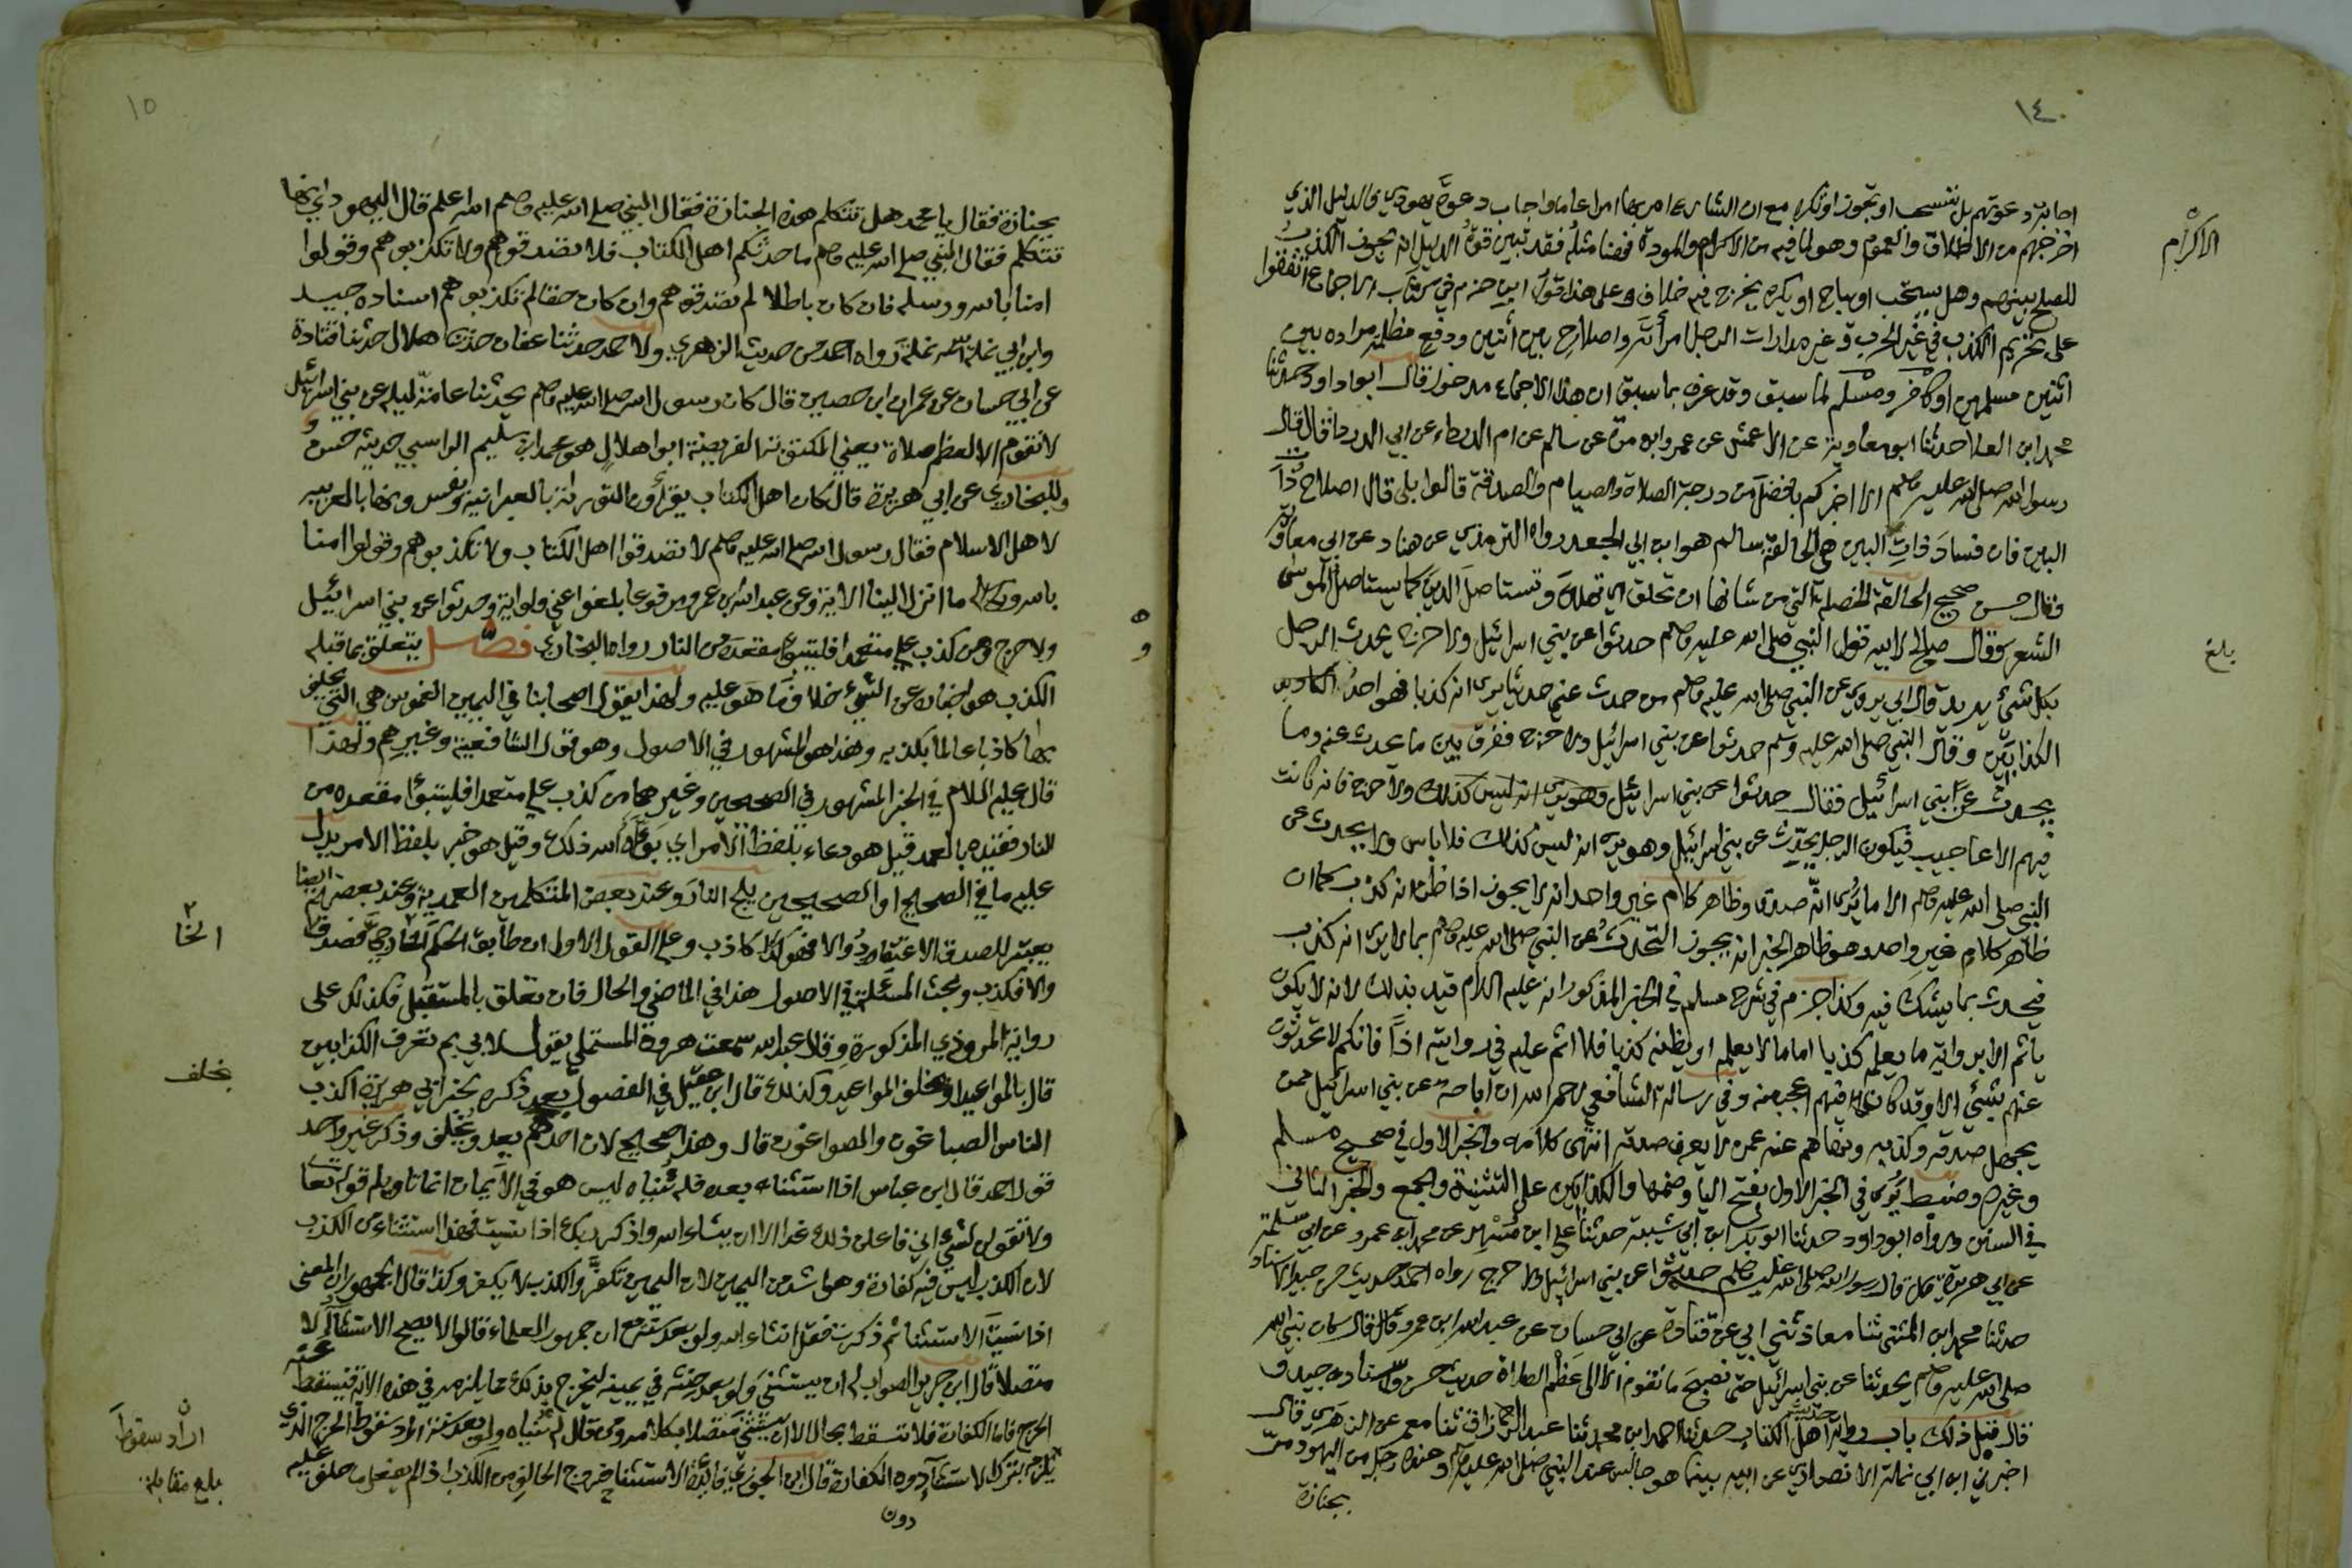 ١٤
اجابة دعوتهم بل تستحب او تجوز او تكره مع ان الشارع امر بها امرا عاما واجاب دعوة يهودي فالدليل الذي
اخرجهم من الاطلاق والعموم وهو لما فيه من الاكرام والمودة ففنا مثله فقد تبين قوة الدليل انه يجوز الكذب
الاكرام
للصلح بينهم وهل يستحب او يباح او يكره يخرج فيه خلاف وعلى هذا قول ابن حزم في كتاب الاجماع اتفقوا
على تحريم الكذب في غير الحرب وغير مدارات الرجل امرأته واصلاح بين اثنين ودفع مظلمة مراده بين
اثنين مسلمين او كافر ومسلم لما سبق وقد عرف بما سبق ان هذا الاجماع مدخول قال ابو داود حدثنا
محمد ابن العلا حدثنا ابو معاوية عن الاعمش عن عمرو ابن مرة عن سالم عن ام الدرداء عن ابي الدرداء قال قال
رسول الله صلى الله عليه وسلم الا اخبركم بافضل من درجة الصلاة والصيام والصدقة قالوا بلى قال اصلاح ذات
البين فان فساد ذات البين هي الحالقة سالم هو ابن ابي الجعد رواه الترمذي عن هناد عن ابي معاوية
فقال حسن صحيح الحالقة الخصلة التي من شأنها ان تحلق اي تهلك وتستاصل الدين كما يستاصل الموسى
الشعر وقال صالح لابيه قول النبي صلى الله عليه وسلم حدثوا عن بني اسرائيل ولا حرج يحدث الرجل
بلغ
بكل شئ يريد قال ابي يروي عن النبي صلى الله عليه وسلم من حدث عني حديثا يرى انه كذبا فهو احد الكاذبين
الكذابين وقال النبي صلى الله عليه وسلم حدثوا عن بني اسرائيل ولا حرج ففرق بين ما يحدث عنه وما
يحدث عن بني اسرائيل فقال حدثوا عن بني اسرائيل وهو يرى انه ليس كذلك ولا حرج فانه كانت
فيهم الاعاجيب فيكون الرجل يحدث عن بني اسرائيل وهو يرى انه ليس كذلك فلا باس ولا يحدث عن
النبي صلى الله عليه وسلم الا ما يرى انه صدق وظاهر كلام غير واحد انه لا يجوز اذا ظن انه كذب كما ان
ظاهر كلام غير واحد وهو ظاهر الخبر انه يجوز التحدث عن النبي صلى الله عليه وسلم بما لا يرى انه كذب
فيحدث بما يشك فيه وكذا جزم في شرح مسلم في الخبر المذكور انه عليه السلام قيد بذلك لانه لا يكون
ياثم الا بروايته ما يعلمه كذبا اما ما لا يعلمه او يظنه كذبا فلا اثم عليه في روايته اذا فانكم لا تحدثون
عنهم بشيئ الا وقد كان فيهم اعجب منه وفي رسالة الشافعي رحمه الله ان اباحة عن بني اسرائيل ممن
يجهل صدقه وكذبه ونهاهم عنه عمن لا يعرف صدقه انتهى كلامه والخبر الاول في صحيح مسلم
وغيره وضبط يُرى في الخبر الاول بفتح اليا وضمها والكذابين على التثنية والجمع والخبر الثاني
في السنن ورواه ابو داود حدثنا ابو بكر ابن ابي شيبة حدثنا علي ابن مسهر عن محمد ابن عمرو عن ابي سلمة
عن ابي هريرة قال قال رسول الله صلى الله عليه وسلم حدثوا عن بني اسرائيل ولا حرج رواه احمد حديث حسن جيد الاسناد
حدثنا محمد ابن المثنى ثنا معاذ ثني ابي عن قتادة عن ابي حسان عن عبد الله ابن عمرو قال قال كان نبي الله
صلى الله عليه وسلم يحدثنا عن بني اسرائيل حتى نصبح ما نقوم الا الى عظم الصلاة حديث حسن واسناده جيد و
قال قبل ذلك باب رواية حديث اهل الكتاب حدثنا احمد ابن محمد ثنا عبد الرزاق ثنا معمر عن الزهري قال
اخبرني ابن ابي نملة الانصاري عن ابيه بينما هو جالس عند النبي صلى الله عليه وسلم وعنده رجل من اليهود مر
بجنازة
١٥
بجنازة فقال يا محمد هل تتكلم هذه الجنازة فقال النبي صلى الله عليه وسلم الله اعلم قال اليهودي انها
تتكلم فقال النبي صلى الله عليه وسلم ما حدثكم اهل الكتاب فلا تصدقوهم ولا تكذبوهم وقولوا
امنا بالله ورسله فان كان باطلا لم تصدقوهم وان كان حقا لم تكذبوهم اسناده جيد
وابن ابي نملة اسمه نملة رواه احمد من حديث الزهري ولاحمد حدثنا عفان حدثنا هلال حدثنا قتادة
عن ابي حسان عن عمران ابن حصين قال كان رسول الله صلى الله عليه وسلم يحدثنا عامة ليله عن بني اسرائيل
لا نقوم الا لعظم صلاة يعني المكتوبة الفريضة ابوا هلال هو محمد ابن سليم الراسبي حديثه حسن و
وللبخاري عن ابي هريرة قال كان اهل الكتاب يقرأون التوراة بالعبرانية ويفسرونها بالعربية
لاهل الاسلام فقال رسول الله صلى الله عليه وسلم لا تصدقوا اهل الكتاب ولا تكذبوهم وقولوا امنا
بالله وما انزل الينا الاية وعن عبد الله بن عمرو مرفوعا بلغوا عني ولو اية وحدثوا عن بني اسرائيل
ولا حرج ومن كذب علي متعمدا فليتبوأ مقعده من النار رواه البخاري فصل يتعلق بما قبله
الكذب هو اخبار عن الشئ خلاف ما هو عليه ولهذا يقول اصحابنا في اليمين الغموس هي التي يحلف
بها كاذبا عالما بكذبه وهذا هو المشهور في الاصول وهو قول الشافعية وغيرهم ولهذا
قال عليه السلام في الخبر المشهور في الصحيحين وغيرهما من كذب علي متعمدا فليتبوأ مقعده من
النار فقيده بالعمد قيل هو دعاء بلفظ الامر اي بوأه الله ذلك وقيل هو خبر بلفظ الامر يدل
عليه ما في الصحيح او الصحيحين يلج النار وعند بعض المتكلمين العمدية وعند بعضهم ايضا
يعتبر للصدق الاعتقاد والا فهو كاذب وعلى القول الاول ان طابق الحكم الخارجي فصدق
الخا
والا فكذب وبحث المسئلة في الاصول هذا في الماضي والحال فان تعلق بالمستقبل فكذلك على
رواية المروذي المذكورة وقال عبد الله سمعت هرون المستملي يقول لابي بم تعرف الكذابين
قال بالمواعيد او بخلف المواعيد وكذلك قال ابن عقيل في الفصول بعد ذكره بخبر ابي هريرة اكذب
بخلف
الناس الصباغون والصواغون قال وهذا صحيح لان احدهم يعد ويخلف وذكر غير واحد
قول احمد قال ابن عباس اذا استثناه بعد فله ثنياه ليس هو في الايمان انما تاويله قوله تعا
ولا تقولن لشئ اني فاعل ذلك غدا الا ان يشاء الله واذكر ربك اذا نسيت فهذا استثناء من الكذب
لان الكذب ليس فيه كفارة وهو اشد من اليمين لان اليمين تكفر والكذب لا يكفر وكذا قال الجمهور ان المعنى
اذا نسيت الاستثنا ثم ذكرت فقل ان شاء الله ولو بعد سنة مع ان جمهور العلماء قالوا لا يصح الاستثنا الا
متصلا قال ابن جرير الصواب له ان يستثني ولو بعد حنثه في يمينه ليخرج بذلك مما يلزمه في هذه الاية فيسقط عنه
الحرج فاما الكفارة فلا تسقط بحال الا ان يستثني متصلا بكلامه ومن قال له ثنياه ولو بعد سنة اراد سقوط الحرج الذي
اراد سقوط
يلزمه بترك الاستثنا دون الكفارة قال ابن الجوزي فائدة الاستثنا خروج الحالف من الكذب اذا لم يفعل ما حلف عليه
بلغ مقابلة
دون